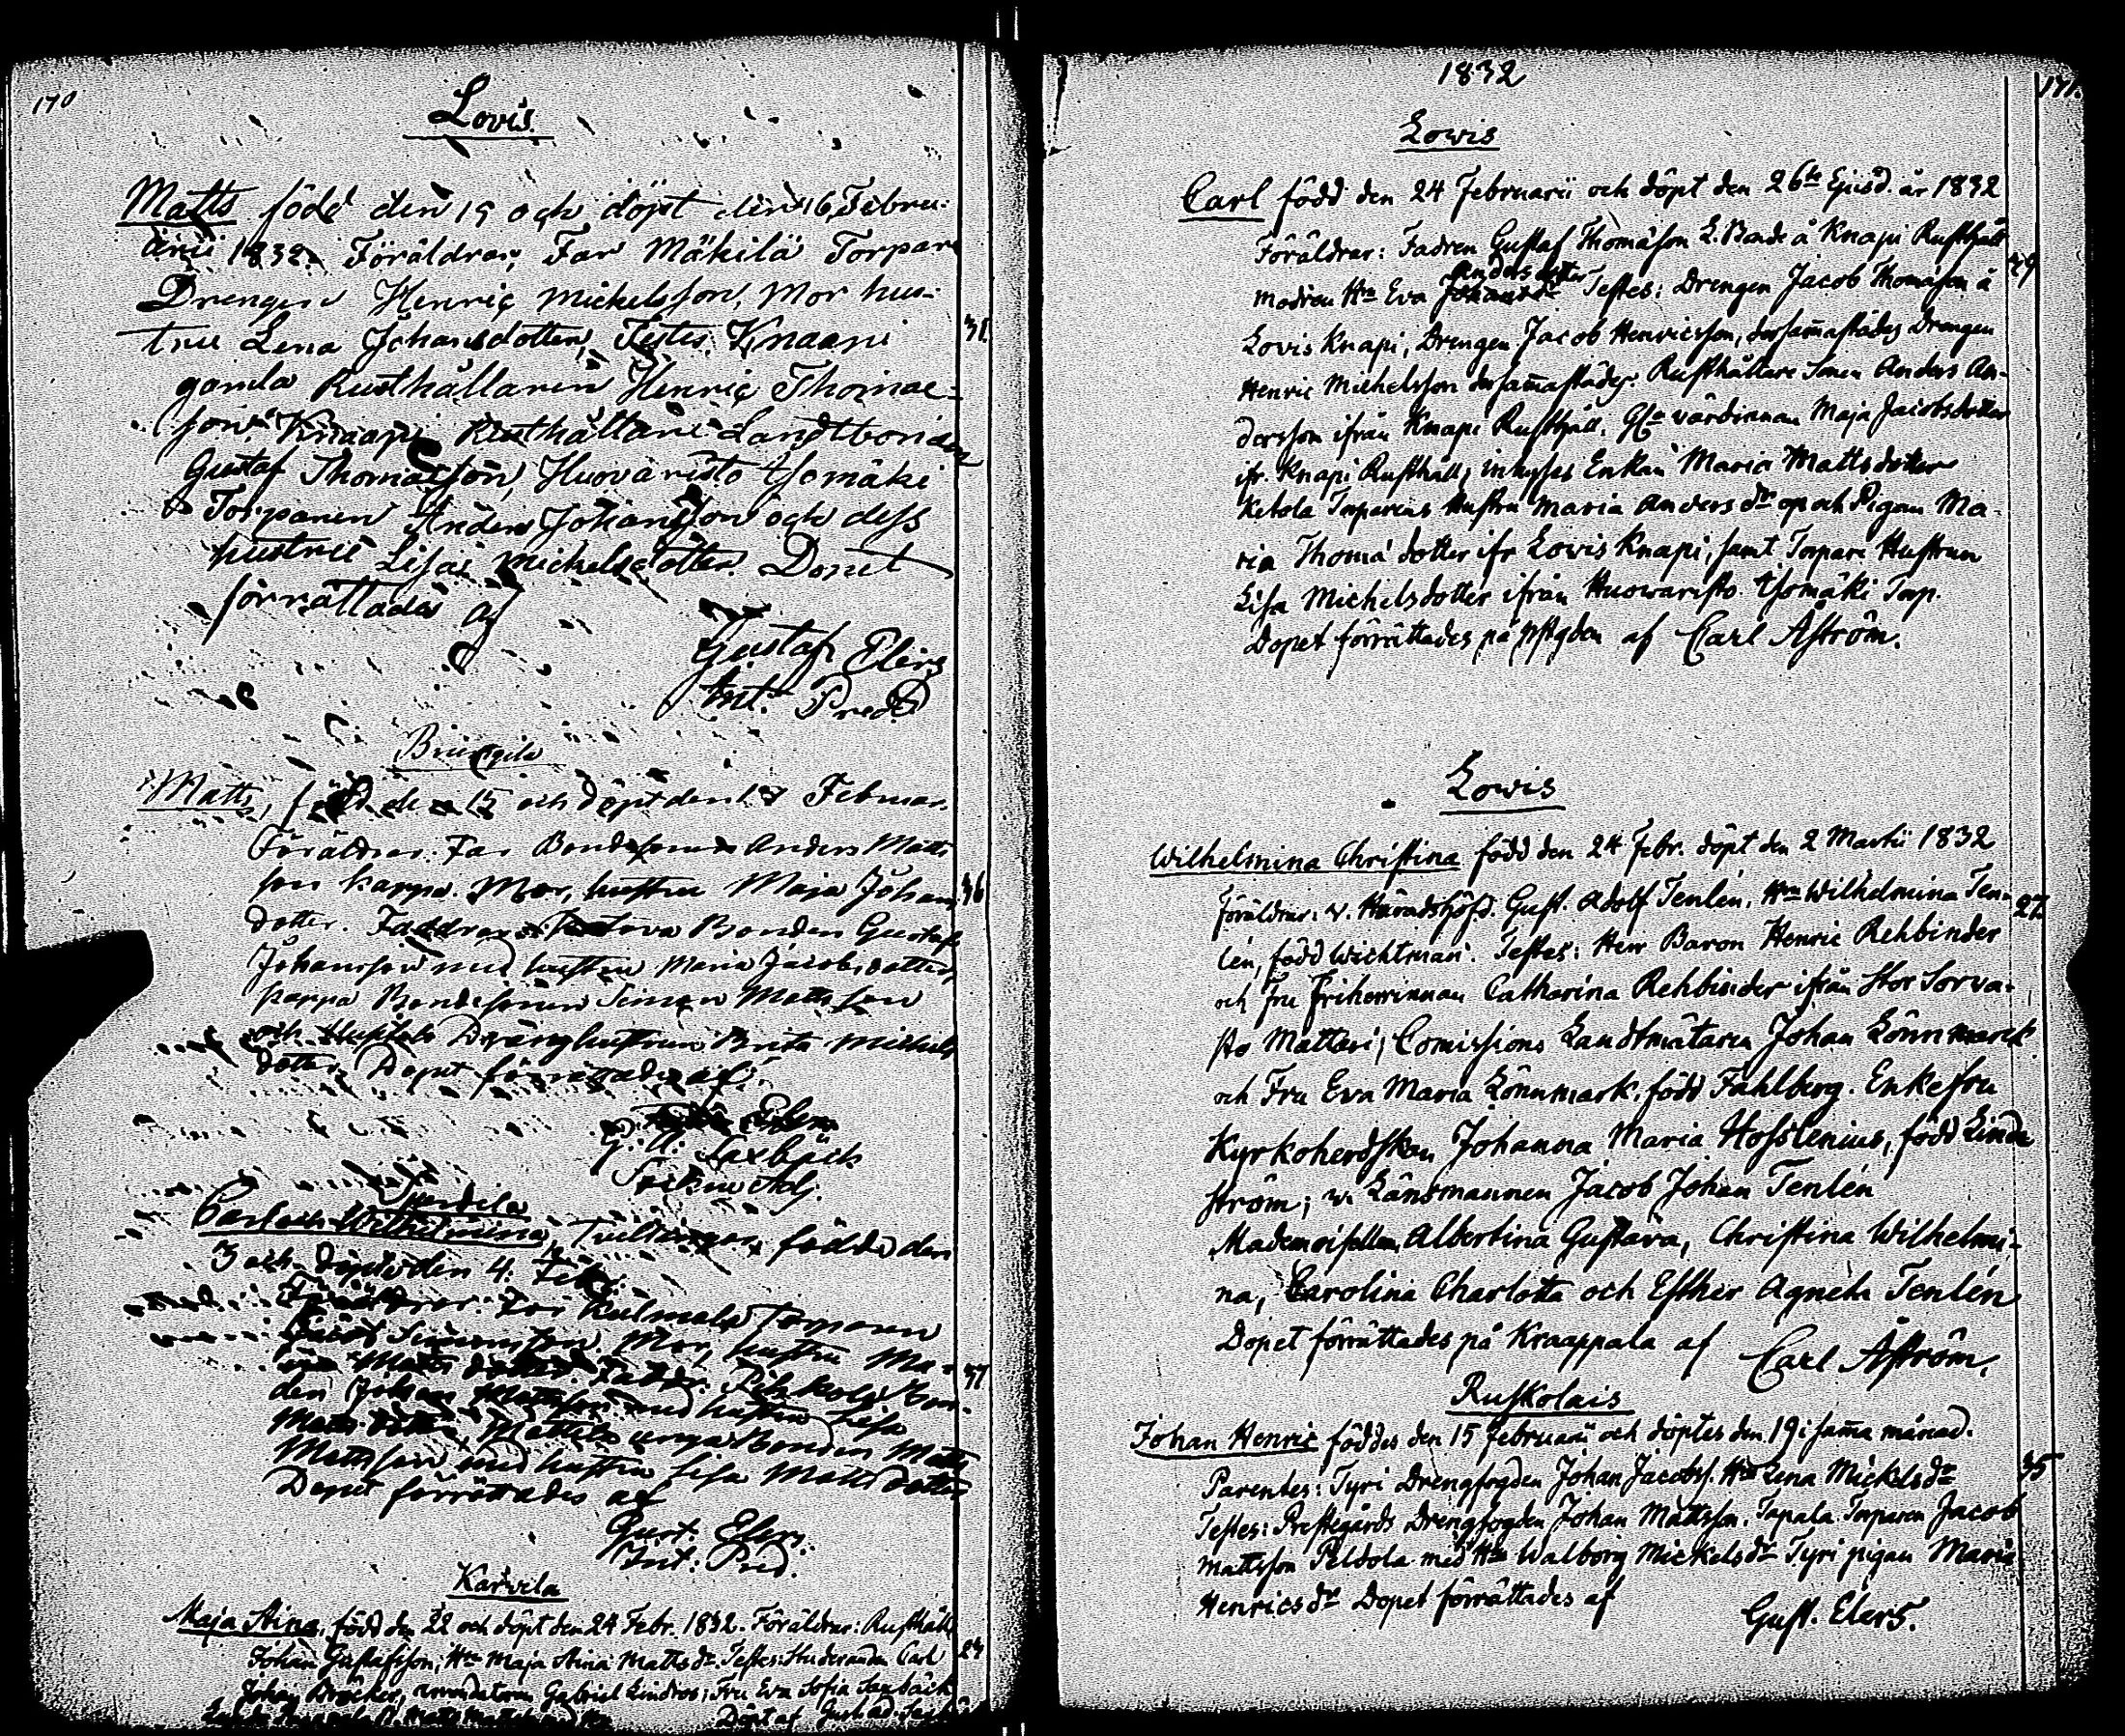 170
Lovis.
Matts född den 15 och döpt den 16 Febru-
arii 1832. Föräldrar, Far Mäkilä Torpare
Drengen Henric Mickelsson, Mor hus-
tru Lena Johansdotter, Testes. Knaapi
31
gamla Rusthållaren Henric Thomae-
son. Knaapi Rusthållare Landtbonden
Gustaf Thomasson, Huovaristo Isomäki
Torparen Anders Johansson och dess
hustru Lisa Mickelsdotter. Dopet
förrättades af
Gustaf Elers
Int. Pred.
Matts, född den 15 och döpt den Februar.
Föräldrar: Far Bondesonen Anders Matts
son Kappa. Mor, hustru Maja Johans
36
dotter. Faddrar Bonden Gustaf
Johansson med hustru Maria Jacobsdotter,
Kappa Bondesonen Simon Mattsson
och Dränghustrun Brita Michels
dotter. Dopet förrättades af
G. A. Saxbäck
Adj.
Carl och Wilhelmina, Tvillingar, födde den
3 och döpte den 4. Febr.
Föräldrar. Far
Simonsson. Mor, hustru Ma-
ria Matts dotter. Faddr. Bon-
37
den Johan Mattsson med hustru Lisa
Matts dotter, Mattila unga Bonden Matts
Mattsson med hustru Lisa Matts dotter
Dopet förrättades af
Gust. Elers.
Int. Pred.
Karvela
Maja Stina, född den 22 och döpt den 24 Febr. 1832. Föräldrar: Rusthåll.
Johan Gustafsson, Hn Maja Stina Mattsdr. Testes: Studeranden Carl
24
Johan Gabriel Lindros; Fru Eva Sofia Saxbäck
Döpt af
1832
171.
Lowis
Carl född den 24 Februarii och döpt den 26te Ejusd. år 1832
Föräldrar: Fadren Gustaf Thomasson L. Bonde å Knapi Rusthåll
29
Andersdotter
modren Hn Eva Johansdr Testes: Drengen Jacob Thomasson å
Lovis Knapi, Drengen Jacob Henricsson, dersammastädes Drengen
Henric Michelsson dersammastädes. Rusthållare Sonen Anders An-
dersson ifrån Knapi Rusthåll. Gla värdinnan Maja Jacobsdotter
ifr. Knapi Rusthåll; inhyses Enkan Maria Mattsdotter
Ketola Torparens Hustru Maria Andersdr och Pigan Ma-
ria Thomä dotter ifr Lovis Knapi, samt Torpare Hustrun
Lisa Michelsdotter ifrån Huowaristo Isomäki Torp.
Dopet förrättades på af Carl Åström.
Lowis
Wilhelmina Christina född den 24 Febr. döpt den 2 Martii 1832
Föräldrar: v. Häradshöfd. Gust. Adolf Tenlén, Hn Wilhelmina Ten-
27.
lén, född Wichtman. Testes: Herr Baron Henric Rehbinder
och Fru Friherrinnan Catharina Rehbinder ifrån Stor Sorva-
sto Mattari; Comissions Landtmätaren Johan Lönnmark
och Fru Eva Maria Lönnmark, född Fahlberg. Enkefru
Kyrkoherdskan Johanna Maria Hoffrenius, född Lind
ström; v. Länsmannen Jacob Johan Tenlén
Mademoisellen, Albertina Gustava, Christina Wilhelmi-
na, Carolina Charlotta och Esther Agneta Tenlén
Dopet förrättades på Kraappala af Carl Åström.
Ruskolais
Johan Henric föddes den 15 Februarii och döptes den 19 i samma månad.
35
Parentes: Tyri Drengfogden Johan Jacobss. Hn Lena Mickelsdr
Testes: Prestegårds Drengfogden Johan Mattsson. Tapala Torparen Jacob
Mattsson Peldola med Hn Walborg Mickelsdr Tyri pigan Maria
Henricsdr Dopet förrättades af
Gust. Elers.